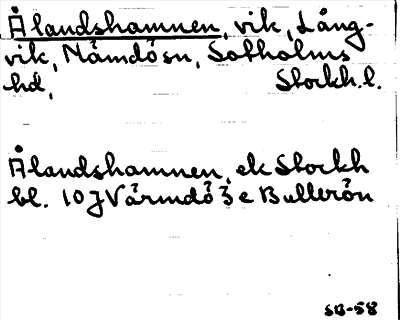 Ålandshamnen, vik, Lång-
vik, Nämdösn, Sotholms
hd, Stockh.l.
Ålandshamnen, ek Stockh
bl. 10J Värmdö 3e Bullerön
SB-58